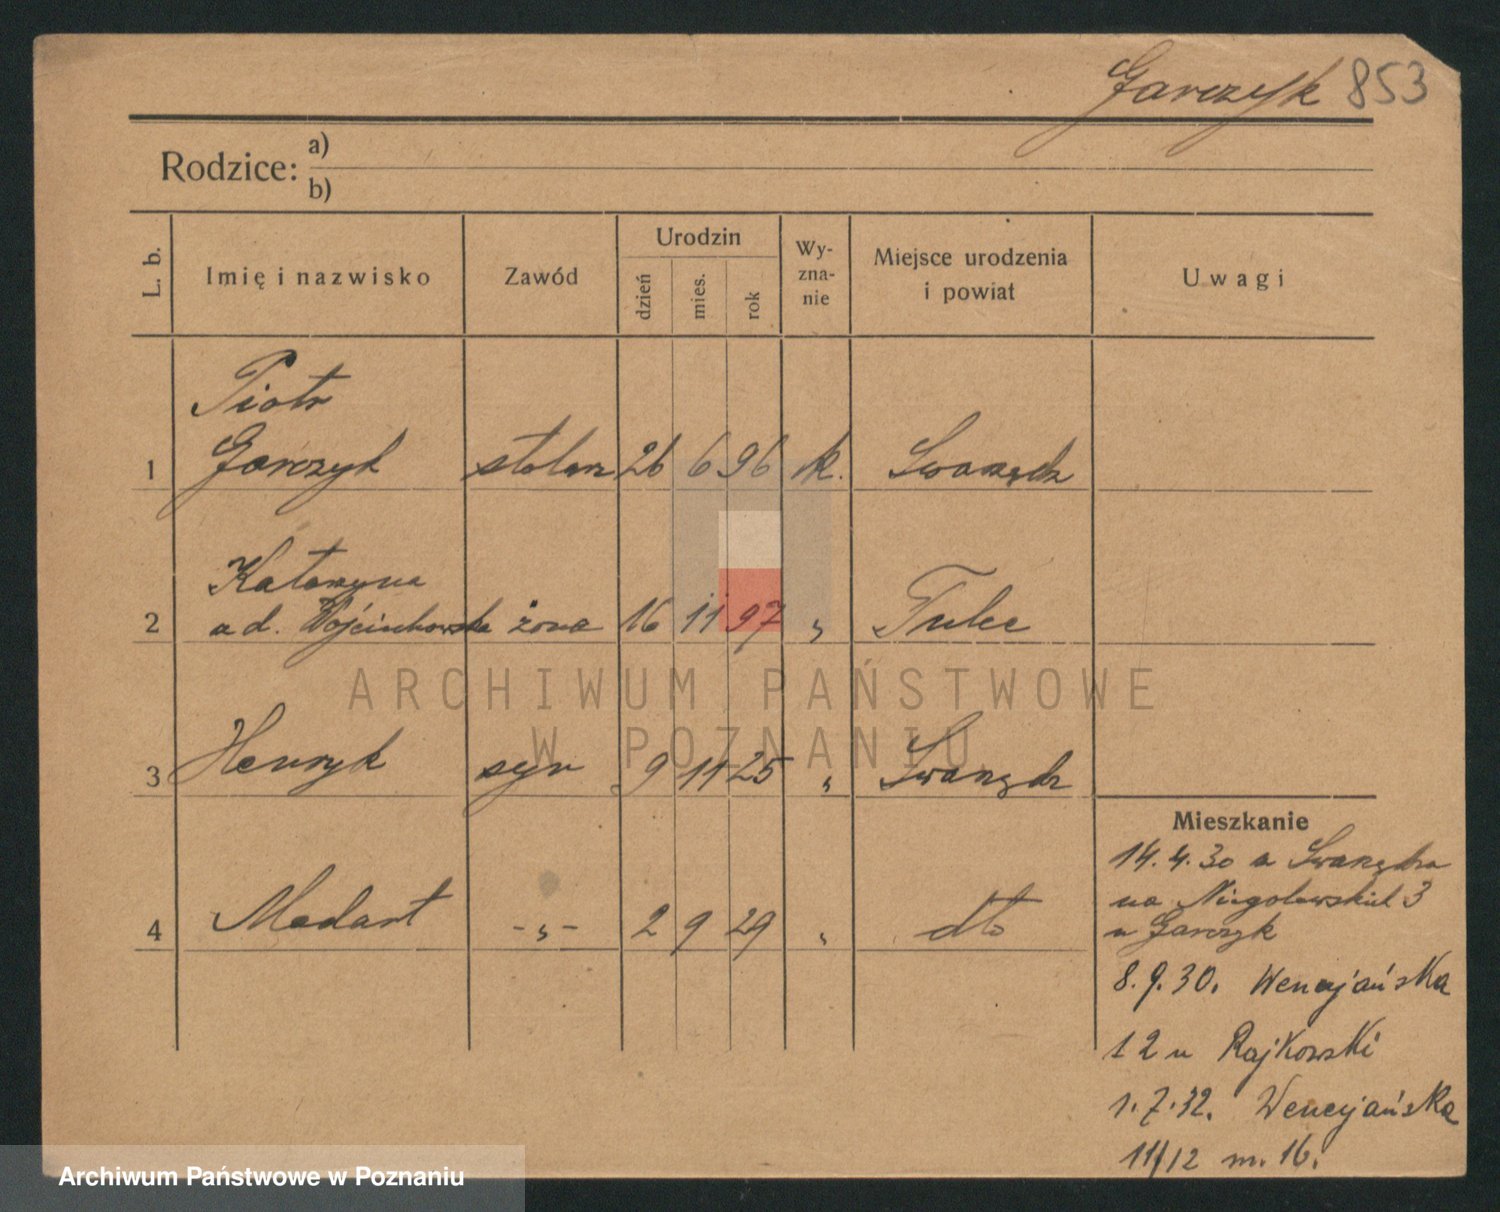 Garczyk 853
Rodzice: a)
b)
L. b.
Imię i nazwisko
Zawód
Urodzin
dzień
mies.
rok
Wy-
zna-
nie
Miejsce urodzenia
i powiat
Uwagi
Piotr
1 Garczyk stolarz 26 6 96 k. Swarzędz
Katarzyna
2 a d. Wojciechowska żona 16 11 97 " Tulce
3 Henryk syn 9 11 25 " Swarzędz
4 Medart -"- 2 9 29 " dto
Mieszkanie
14.4.30 z Swarzędza
na Niegolewskich 3
u Garczyk
8.9.30. Wenecjańska
12 u Rajkowski
1.7.32. Wenecjańska
11/12 m. 16.
ARCHIWUM PAŃSTWOWE
W POZNANIU
Archiwum Państwowe w Poznaniu